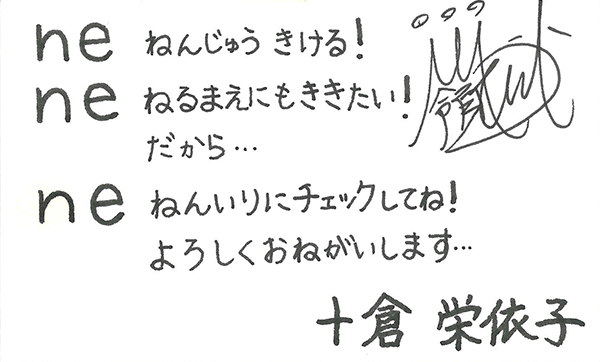 ne ねんじゅう きける!
ne ねるまえにもききたい!
だから…
ne ねんいりにチェックしてね!
よろしくおねがいします…
十倉 栄依子